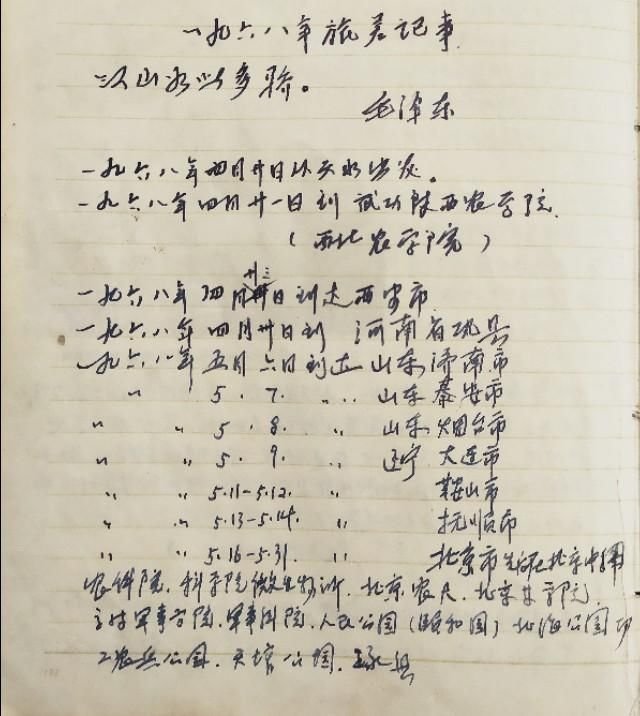 一九六八年旅差记事
江山如此多骄。
毛泽东
一九六八年四月廿日从天水出发。
一九六八年四月廿一日到武功陕西农学院
(西北农学院)
一九六八年四月廿三日到达西安市
一九六八年四月卅日到河南省巩县
一九六八年五月六日到达山东济南市
〃 5.7. 〃 山东泰安市
〃 〃 5.8. 〃 山东烟台市
〃 〃 5.9. 〃 辽宁大连市
〃 〃 5.11-5.12. 〃 鞍山市
〃 〃 5.13-5.14. 〃 抚顺市
〃 〃 5.16-5.31. 〃 北京市 北京中国
农科院.科学院微生物所.北京农大.北京 学院
军事学院.军事科院.人民公园(颐和园)北海公园
工农兵公园.天坛公园.